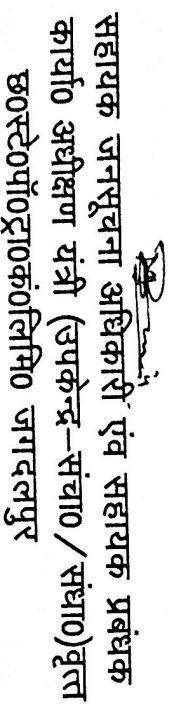 सहायक जनसूचना अधिकारी एंव सहायक प्रबंधक
कार्या0 अधीक्षण यंत्री (उपकेन्द्र–संचा0 / संधा0)वृत्त
छ0स्टे0पॉ0ट्रा0कं0लिमि0 जगदलपुर